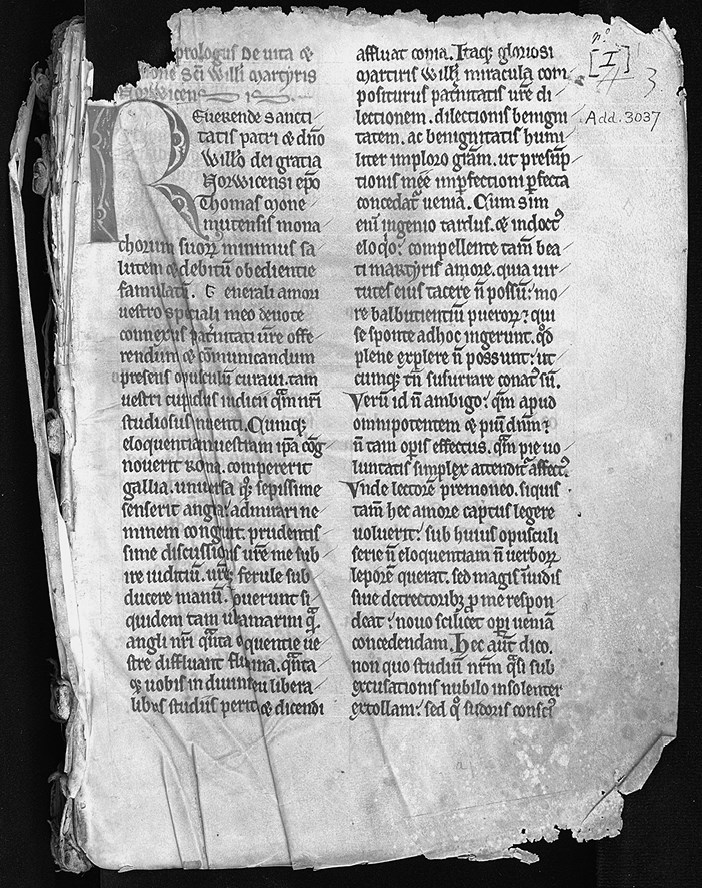 prologus de uita &
one sc̄i Will̄i martyris
Norwicens
REuerende sancti
tatis patri & dn̄o
Will'o dei gratia
Norwicensi ep̄o
Thomas mone
mutensis mona
chorum suoꝝ minimus sa
lutem & debitū obedientie
famulatū. Generali amori
uestro speciali meo deuote
connexus pat̄nitati ur̄e offe
rendum & cōmunicandum
presens opusculū curaui. tam
uestri cupidus iudicii qm̄ nr̄i
studiosus
eloquentiam uestram ip̄a
nouerit roma. compererit
gallia. uniuersa qꝫ sepissime
senserit angła. admirari ne
minem congruit. prudentis
sime discussionis ur̄e me sub
ire iuditiū. ur̄e ferule sub
ducere manū. Nouerunt si
quidem tam
angli nr̄i qn̄ta eloquentie ue
stre diffluant flumina. qn̄ta
qꝫ uobis in diuini eu libera
libus studiis peritia & dicendi
affluat copia. Itaqꝫ gloriosi
martiris Will̄i miracula com
positurus pat̄nitatis ur̄e di
lectionem. dilectionis benigni
tatem. ac benignitatis humi
liter imploro gr̄am. ut presūp
tionis mee īmpfectioni pfecta
concedat᷒ uenia. Cum sim
eni ingenio tardus. & indoct᷒
eloqo: compellente tam̄ bea
ti martyris amore. quia uir
tutes eius tacere n̄ possū: mo
re balbutientiū pueroꝝ: qui
se sponte ad hoc ingerunt. qd̄
plene explere n̄ possunt: ut
cumqꝫ tn̄ susurrare conat᷒ sū.
Verū id n̄ ambigo: qm̄ apud
omnipotentem & piū dn̄m:
n̄ tam op̄is effectus. qm̄ pie uo
luntatis simplex attendit᷒ affect᷒.
Vnde lectorē premoneo. siquis
tam̄ hec amore captus legere
uoluerit: sub huius opusculi
serie n̄ eloquentiam n̄ uerboꝝ
leporē querat. sed magis īuidis
siue detrectoribꝫ p me respon
deat: nouo scilicet opi ueniā
concedendam. Hec aut̄ dico.
non quo studiū nr̄m qsi sub
excusationis nubilo insolenter
extollam: sed qꝰ sudoris consci᷒
nº
[I]
3
Add. 3037